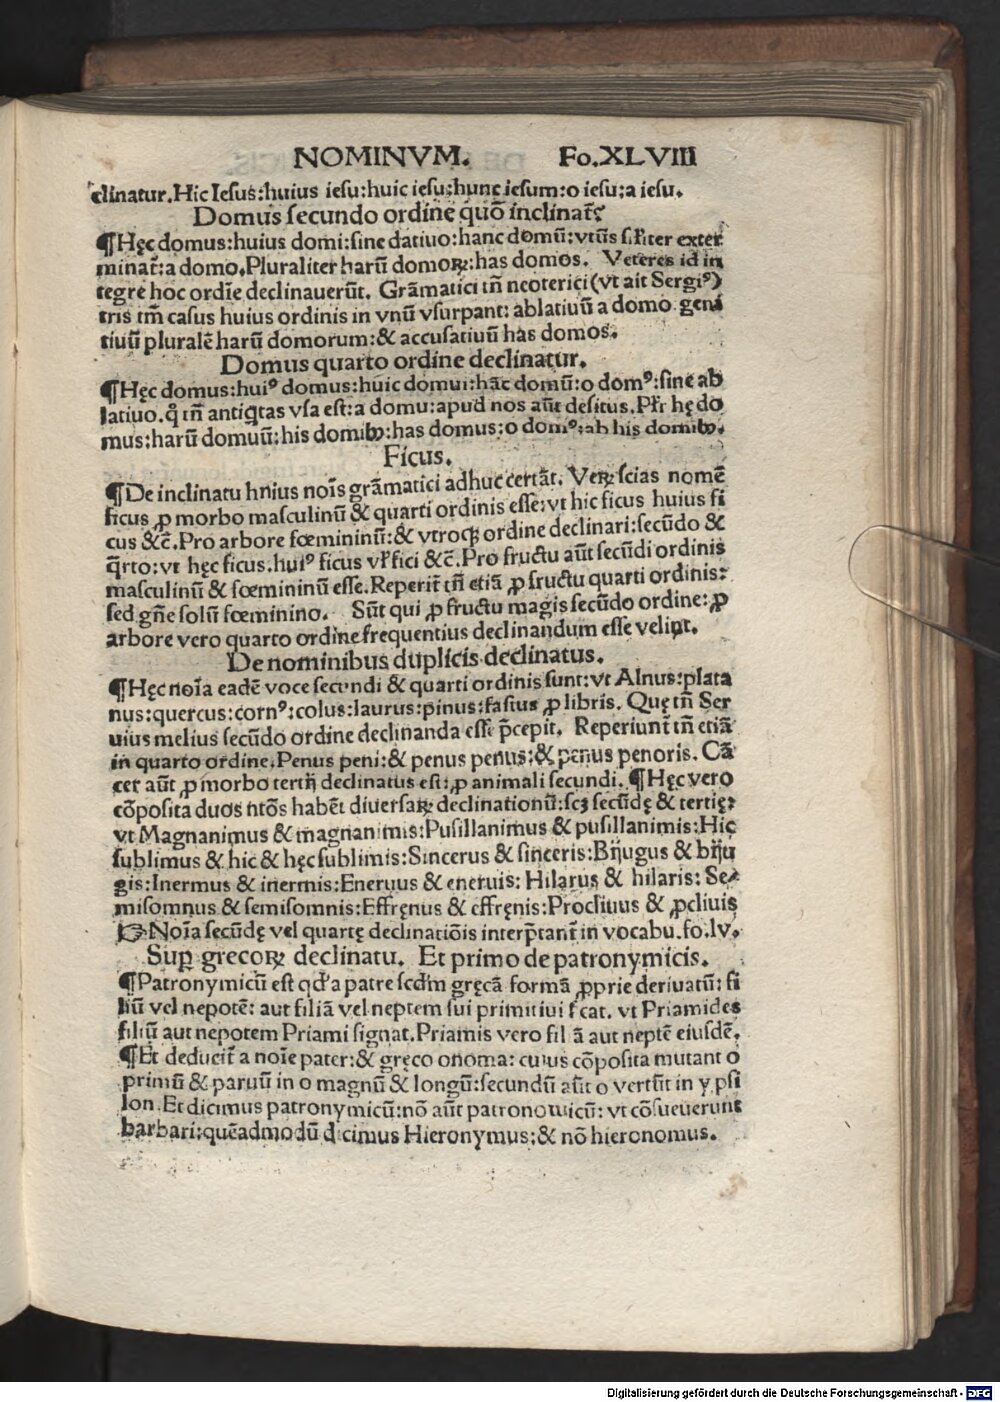 NOMINVM. Fo.XLVIII
clinatur. Hic Iesus:huius iesu:huic iesu:hunc iesum:o iesu:a iesu.
Domus secundo ordine quō inclinat᷑
¶Hęc domus:huius domi:sine datiuo:hanc domū:vtūs sil̄iter exter
minat᷑:a domo.Pluraliter harū domoꝝ:has domos. Veteres id in
tegre hoc ordīe declinauerūt. Grāmatici tñ neoterici (vt ait Sergiꝰ)
tris tm̄ casus huius ordinis in vnū vsurpant: ablatiuū a domo geni
tiuū pluralē harū domorum:& accusatiuū has domos.
Domus quarto ordine declinatur.
¶Hęc domus:huiꝰ domus:huic domui:hāc domū:o domꝰ:sine ab
latiuo.q̄ tñ antiq̄tas vsa est:a domu:apud nos aūt desitus.Pl̄r hę do
mus:harū domuū:his domibꝰ:has domus:o domꝰ:ab his domibꝰ.
Ficus.
¶De inclinatu huius noīs grāmatici adhuc certāt. Veꝝ scias nomē
ficus ꝓ morbo masculinū & quarti ordinis esse:vt hic ficus huius fi
cus &c̄.Pro arbore fœmininū:& vtroqꝫ ordine declinari:secūdo &
q̄rto:vt hęc ficus.huiꝰ ficus vl̄ fici &c̄.Pro fructu aūt secūdi ordinis
masculinū & fœmininū esse.Reperit᷑ tñ etiā ꝓ fructu quarti ordinis:
sed gñe solū fœminino. Sūt qui ꝓ fructu magis secūdo ordine:ꝓ
arbore vero quarto ordine frequentius declinandum esse velint.
De nominibus duplicis declinatus.
¶Hęc noīa eadē voce secundi & quarti ordinis sunt:vt Alnus:plata
nus:quercus:cornꝰ:colus:laurus:pinus:fastus ꝓ libris. Quę tñ Ser
uius melius secūdo ordine declinanda esse p̄cepit. Reperiunt᷑ tñ etiā
in quarto ordine.Penus peni:& penus penus:& penus penoris. Cā
cer aūt ꝓ morbo tertij declinatus est:ꝓ animali secundi.¶Hęc vero
cōposita duos ntōs habēt diuersaꝝ declinationū:scꝫ secūdę & tertię:
vt Magnanimus & magnanimis:Pusillanimus & pusillanimis:Hic
sublimus & hic & hęc sublimis:Sincerus & sinceris:Bijugus & biju
gis:Inermus & inermis:Eneruus & eneruis: Hilarus & hilaris: Se⸗
misomnus & semisomnis:Effręnus & effręnis:Procliuus & ꝓcliuis
☞Noīa secūdę vel quartę declinatiōis interp̄tant᷑ in vocabu.fo.lv.
Sup̱ grecoꝝ declinatu. Et primo de patronymicis.
¶Patronymicū est qd̄ a patre scd̄m gręcā formā ꝓprie deriuatū: fi
liū vel nepotē: aut filiā vel neptem sui primitiui s̄cat. vt Priamides
filiū aut nepotem Priami signat.Priamis vero fil ā aut neptē eiusdē.
¶Et deducit᷑ a noīe pater:& gręco onoma: cuius cōposita mutant o
primū & paruū in o magnū & longū:secundū aūt o vertūt in y psi
lon.Et dicimus patronymicū:nō aūt patronomicū: vt cōsueuerunt
barbari:quēadmodū dicimus Hieronymus:& nō hieronomus.
Digitalisierung gefördert durch die Deutsche Forschungsgemeinschaft - DFG